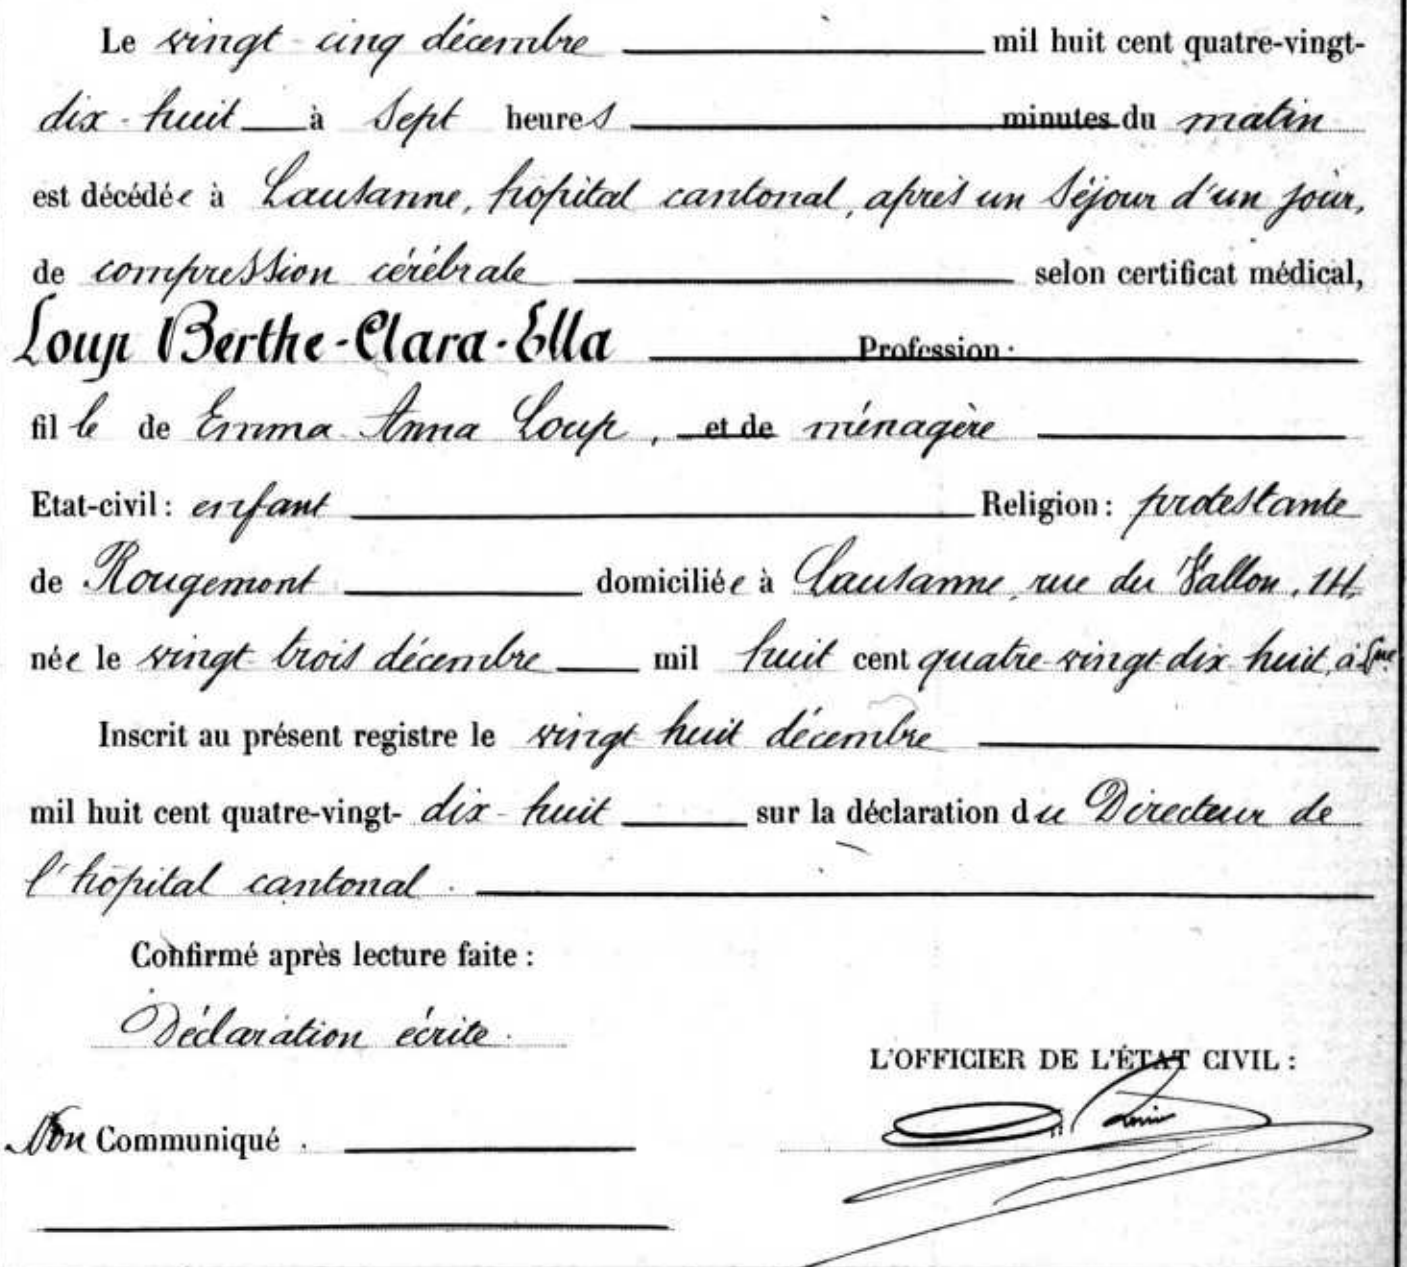 Le vingt-cinq décembre mil huit cent quatre-vingt-
dix-huit à sept heures minutes du matin
est décédée à Lausanne, hôpital cantonal, après un séjour d'un jour,
de compression cérébrale selon certificat médical,
Loup Berthe-Clara-Ella Profession.
fille de Emma Anna Loup, et de ménagère
Etat-civil: enfant Religion: protestante
de Rougemont domiciliée à Lausanne, rue du Vallon, 14.
née le vingt-trois décembre mil huit cent quatre-vingt-dix-huit, à Lne.
Inscrit au présent registre le vingt-huit décembre
mil huit cent quatre-vingt-dix-huit sur la déclaration du Directeur de
l'hôpital cantonal.
Confirmé après lecture faite:
Déclaration écrite.
L'OFFICIER DE L'ÉTAT CIVIL:
Non Communiqué.